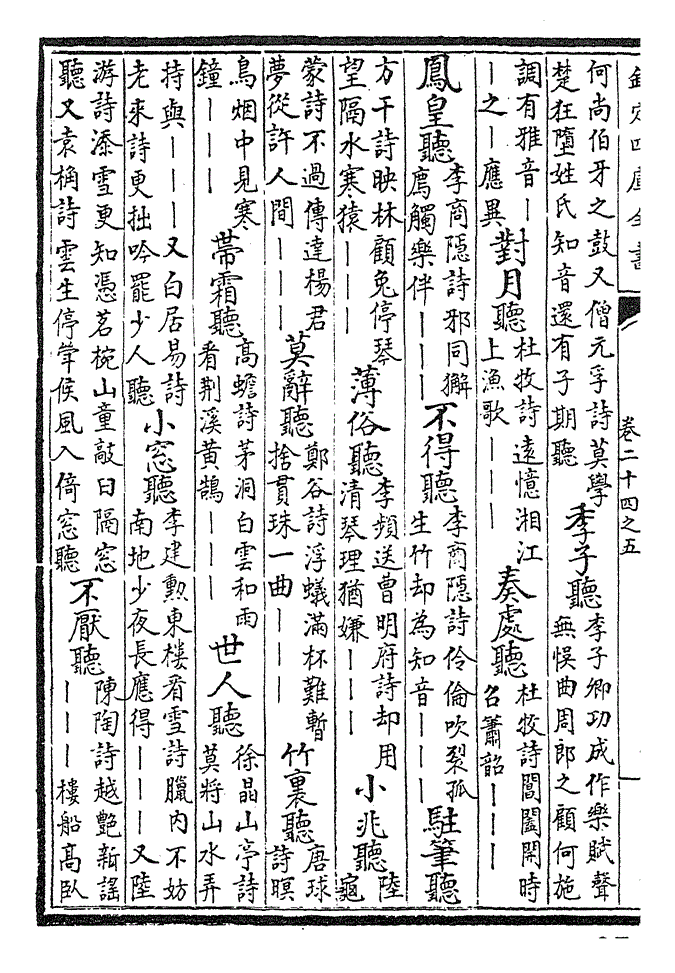 欽定四庫全書
卷二十四之五
何尚伯牙之鼓又僧元孚詩莫學
楚狂墮姓氏知音還有子期聽
季子聽
李子卿功成作樂賦聲
無悞曲周郎之顧何施
調有雅音丨
丨之丨應異
對月聽
杜牧詩遠憶湘江
上漁歌丨丨丨
奏處聽
杜牧詩閶闔開時
召簫韶丨丨丨
鳳皇聽
李商隱詩邪同獬
廌觸樂伴丨丨丨
不得聽
李商隱詩伶倫吹裂孤
生竹却為知音丨丨丨
駐筆聽
方干詩映林顧兔停琴
望隔水寒猿丨丨丨
薄俗聽
李頻送曹明府詩却用
清琴理猶嫌丨丨丨
小兆聽
陸
龜
蒙詩不過傳達楊君
夢從許人間丨丨丨
莫辭聽
鄭谷詩浮蟻滿杯難暫
捨貫珠一曲丨丨丨
竹裏聽
唐球
詩暝
鳥烟中見寒
鐘丨丨丨
帶霜聽
高蟾詩茅洞白雲和雨
看荆溪黄鵠丨丨丨
世人聽
徐晶山亭詩
莫將山水弄
持與丨丨丨又白居易詩
老來詩更拙吟罷少人聽
小窓聽
李建勲東樓看雪詩臘内不妨
南地少夜長應得丨丨丨又陸
游詩添雪更知憑茗椀山童敲臼隔窓
聽又袁桷詩雲生停候風入倚窓聽
不厭聽
陳陶詩越艷新謡
丨丨丨樓船高臥